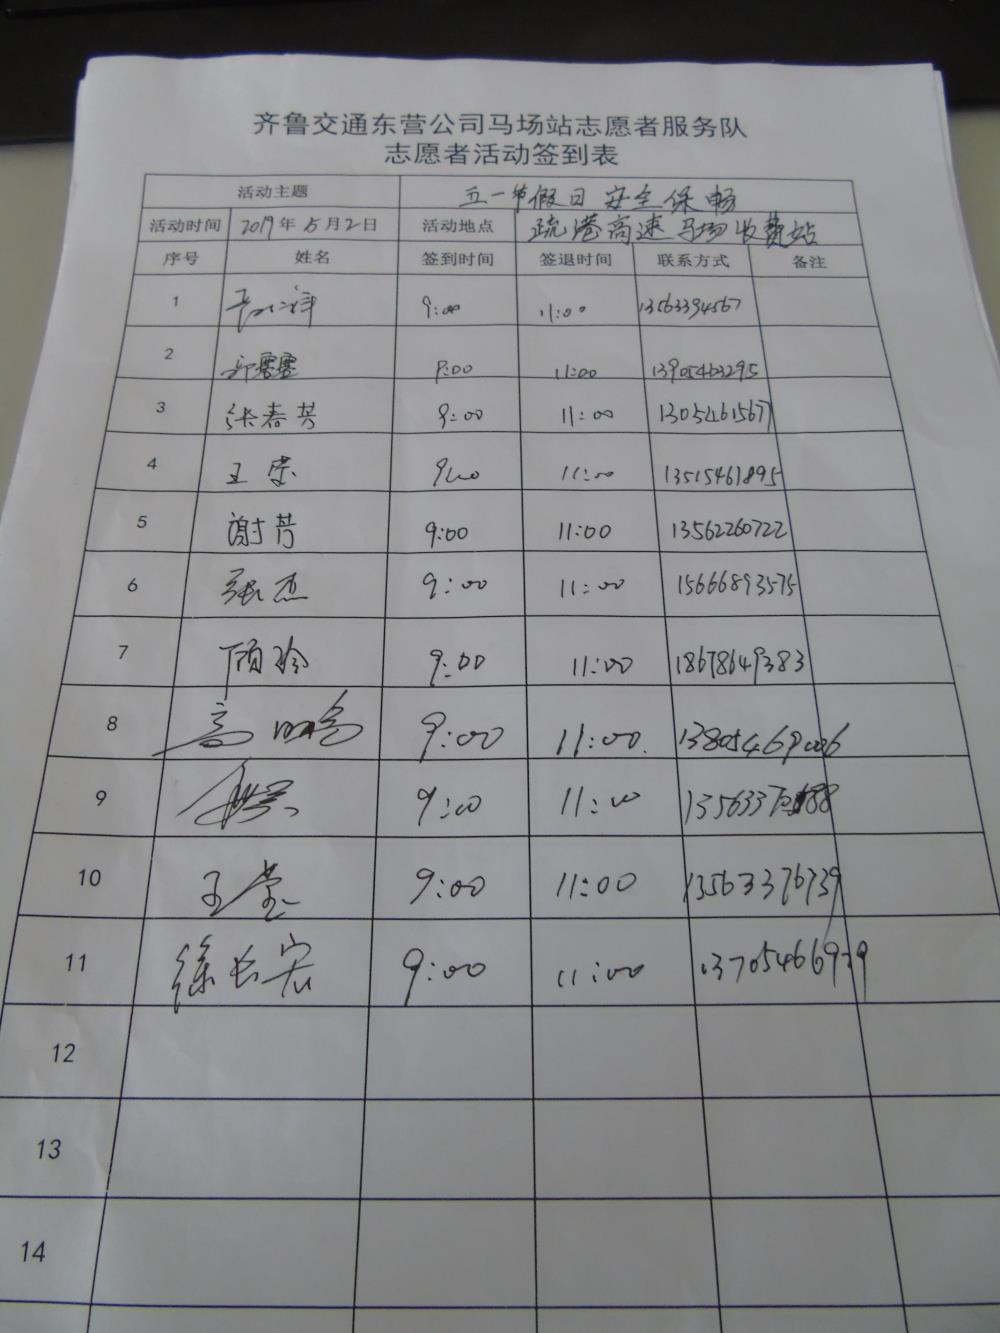 齐鲁交通东营公司马场站志愿者服务队
志愿者活动签到表
活动主题 五一节假日安全保畅
活动时间 2019年5月2日 活动地点 疏港高速马场收费站
序号 姓名 签到时间 签退时间 联系方式 备注
1 9:00 11:00 13563394567
2 郭震震 9:00 11:00 13905463295
3 张春芳 9:00 11:00 13054615677
4 王荣 9:00 11:00 13515461895
5 谢芳 9:00 11:00 13562260722
6 张杰 9:00 11:00 15666893575
7 顾玲 9:00 11:00 18678649383
8 高鹏 9:00 11:00 13805469006
9 9:00 11:00
10 王莹 9:00 11:00 13563376739
11 徐长宏 9:00 11:00
12
13
14